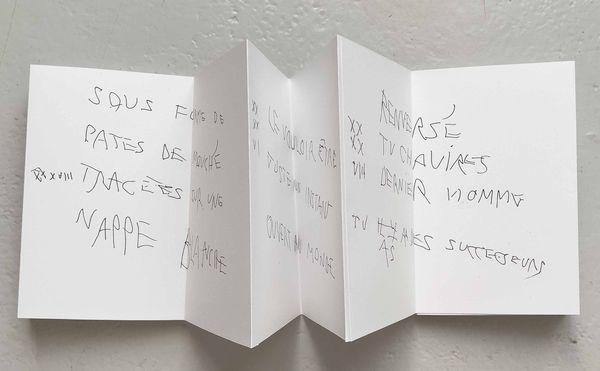 SOUS FORME DE
PATES DE MOUCHE
XXXVIII TRACÉES SUR UNE
NAPPE BLANCHE
XX
XX LE VOULOIR ÊTRE
VI
UN INSTANT
OUVERT AU MONDE
RENVERSÉ
XX
XX TU CHAVIRES
VIII DERNIER HOMME
TU AS DES